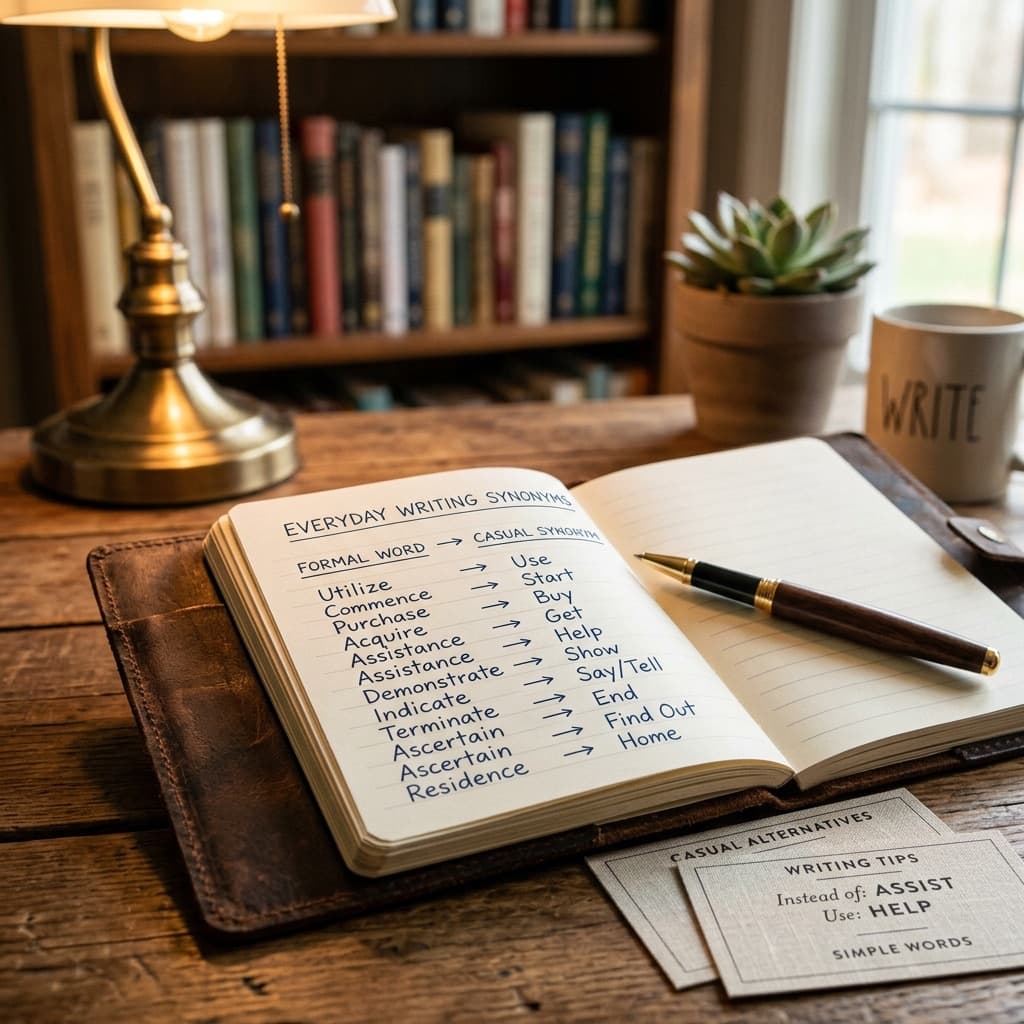 EVERYDAY WRITING SYNONYMS
FORMAL WORD → CASUAL SYNONYM
Utilize → Use
Commence → Start
Purchase → Buy
Acquire → Get
Assistance → Help
Assistance
Demonstrate → Show
Indicate → Say/Tell
Terminate → End
Ascertain → Find Out
Ascertain
Residence → Home
WRITE
CASUAL ALTERNATIVES
WRITING TIPS
Instead of: ASSIST
Use: HELP
SIMPLE WORDS